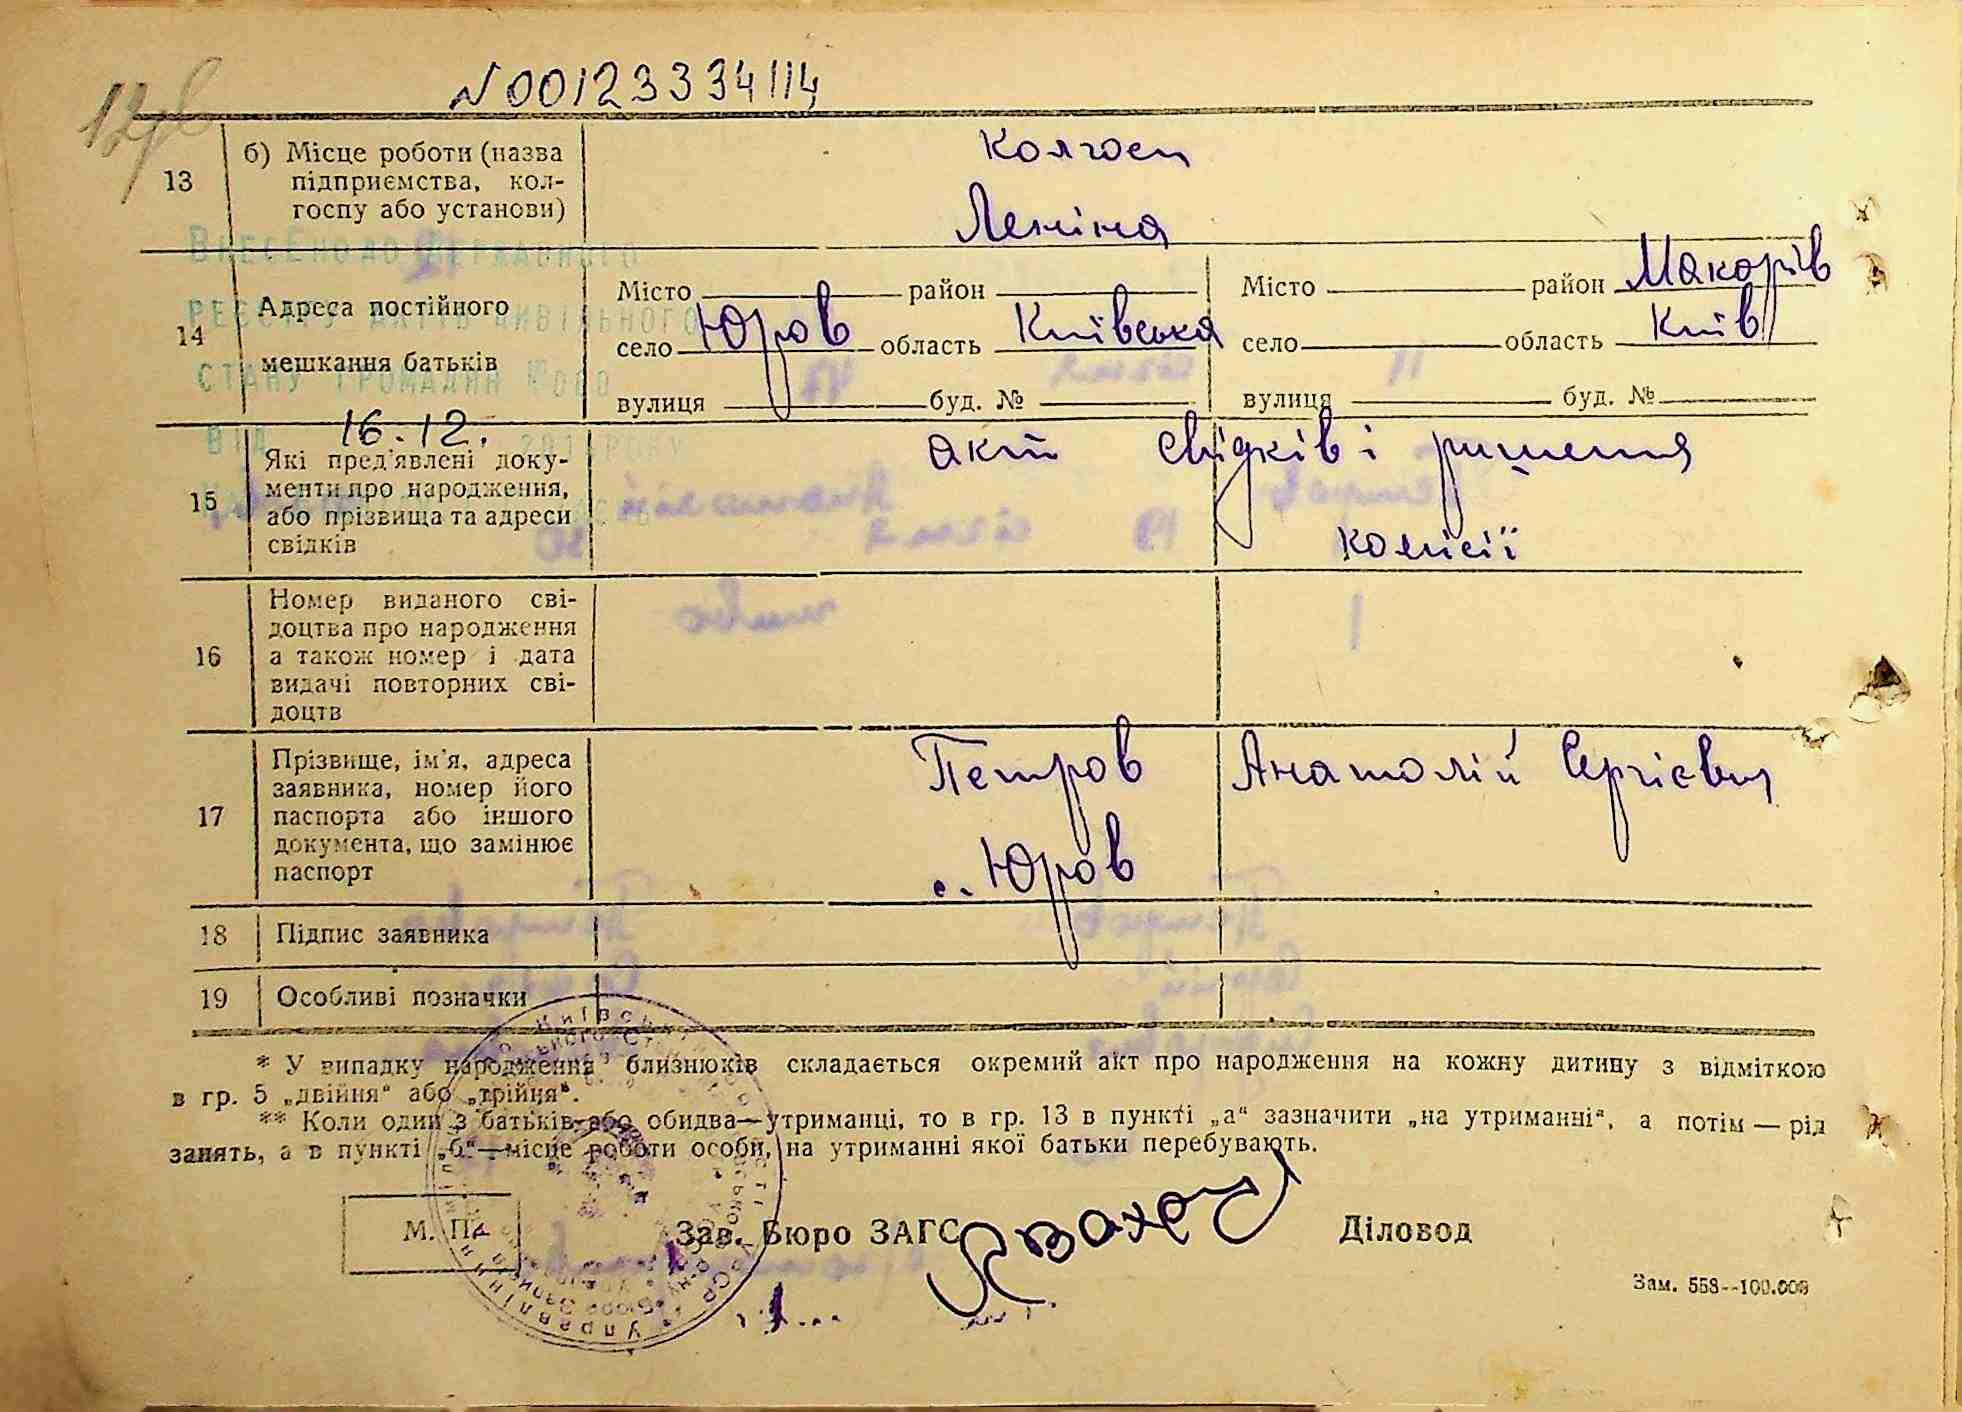 N00123334114
13
б) Місце роботи (назва
підприємства, кол-
госпу або установи)
Колгосп
Леніна
ВНЕСЕНО ДО ДЕРЖАВНОГО
РЕЄСТРУ АКТІВ ЦИВІЛЬНОГО
СТАНУ ГРОМАДЯН
ВІД 16.12. 201 РОКУ
14
Адреса постійного
мешкання батьків
Місто район Місто район Макарів
село Юров область Київська село область Київ
вулиця буд. № вулиця буд. №
15
Які пред'явлені доку-
менти про народження,
або прізвища та адреси
свідків
акт свідків і рішення
комісії
16
Номер виданого сві-
доцтва про народження
а також номер і дата
видачі повторних сві-
доцтв
17
Прізвище, ім'я, адреса
заявника, номер його
паспорта або іншого
документа, що замінює
паспорт
Петров Анатолій Сергієвич
с. Юров
18 Підпис заявника
19 Особливі позначки
* У випадку народження близнюків складається окремий акт про народження на кожну дитину з відміткою
в гр. 5 „двійня“ або „трійня“.
** Коли один з батьків або обидва—утриманці, то в гр. 13 в пункті „а“ зазначити „на утриманні“, а потім — рід
занять, а в пункті „б“—місце роботи особи, на утриманні якої батьки перебувають.
М. П. Зав. Бюро ЗАГС Діловод
Зам. 558--100.000